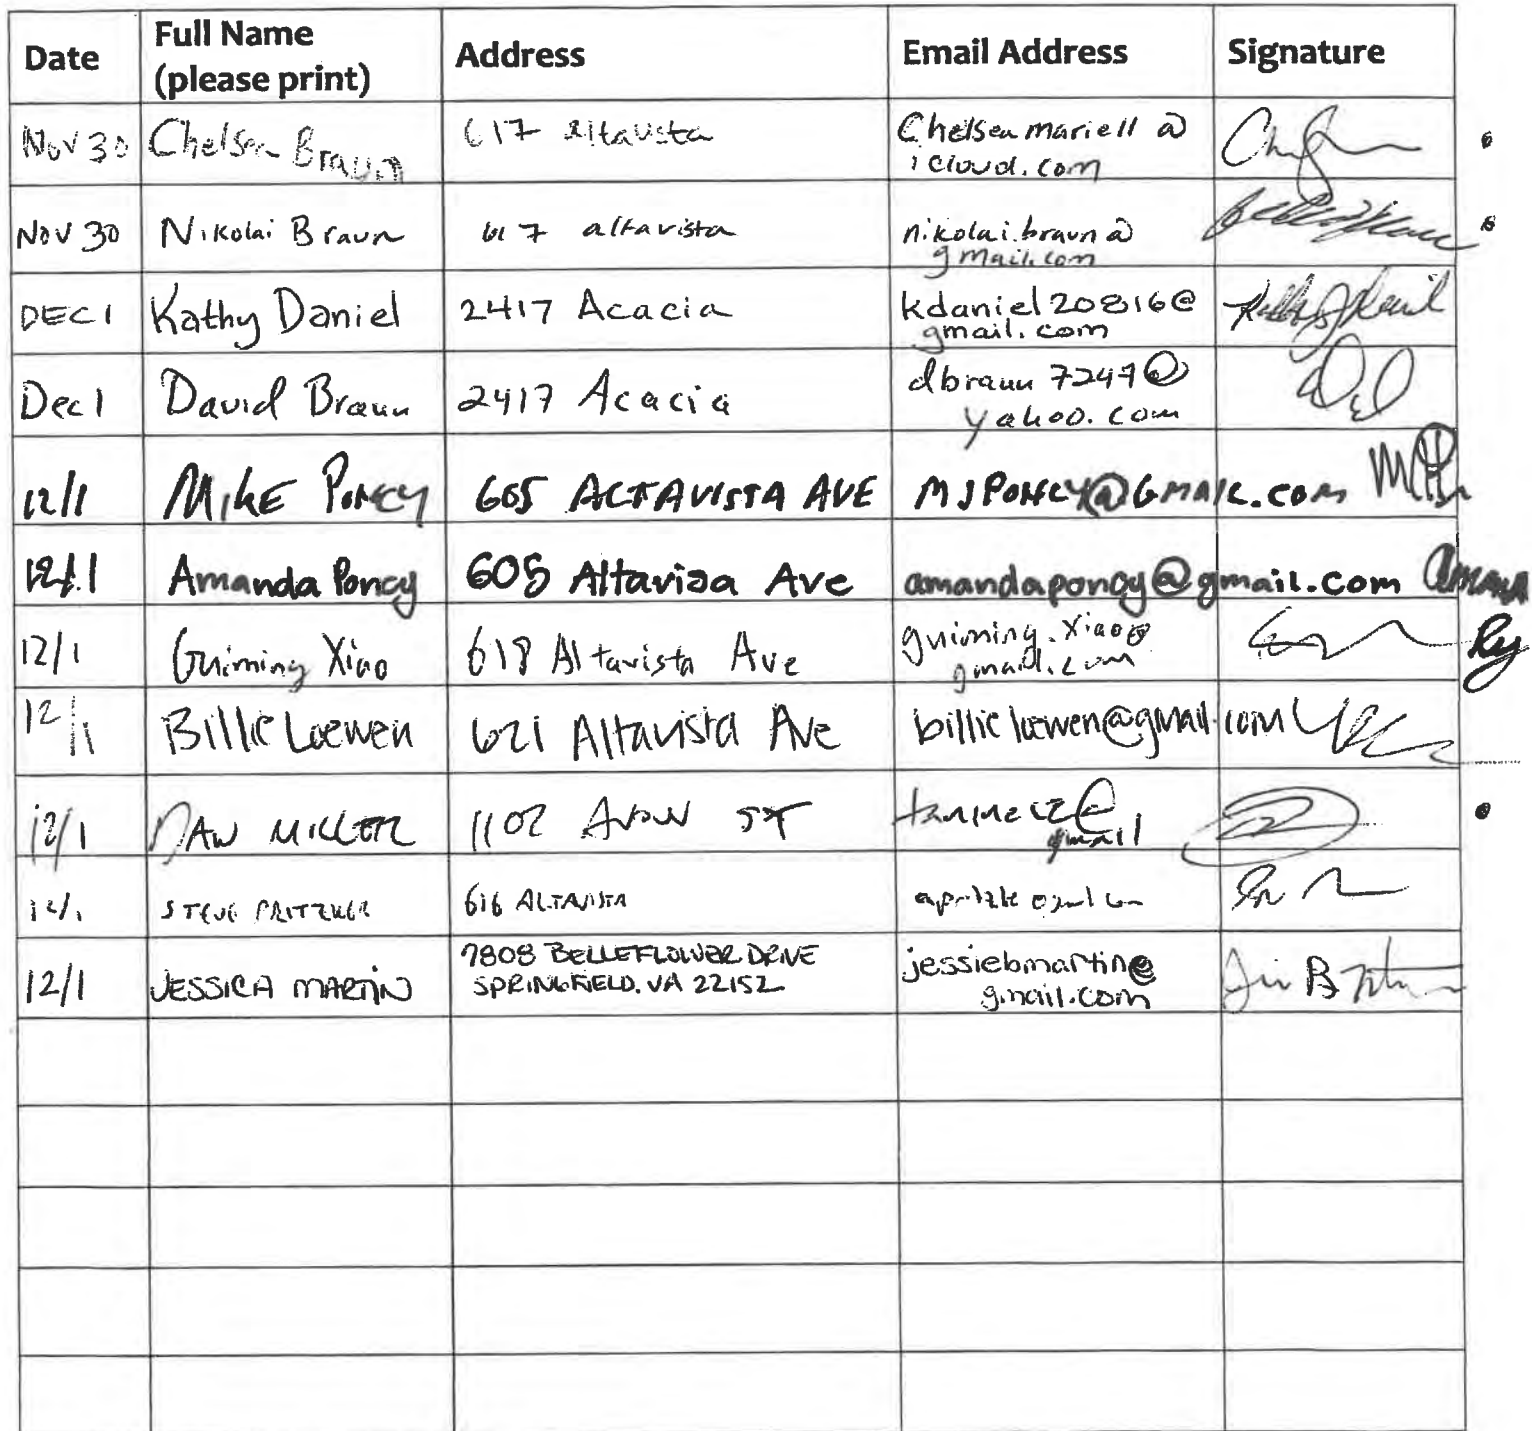 Date Full Name (please print) Address Email Address Signature
Nov 30 Chelsea Braun 617 altavista Chelseamariell@
icloud.com
Nov 30 Nikolai Braun 617 altavista nikolai.braun@
gmail.com
DEC 1 Kathy Daniel 2417 Acacia kdaniel20816@
gmail.com
Dec 1 David Braun 2417 Acacia dbraun7247@
yahoo.com
12/1 MIKE PONCY 605 ALTAVISTA AVE MJPONCY@GMAIL.COM
12/1 Amanda Poncy 605 Altavisa Ave amandaponcy@gmail.com Amanda
Py
12/1 Guiming Xiao 618 Altavista Ave guiming.xiao@
gmail.com
12/1 Billie Loewen 621 Altavista Ave billieloewen@gmail.com
12/1 DAN MILLER 1102 AVON ST
gmail
12/1 STEVE PRITZKER 616 ALTAVISTA
12/1 JESSICA MARTIN 7808 BELLEFLOWER DRIVE
SPRINGFIELD, VA 22152
jessiebmartin@
gmail.com